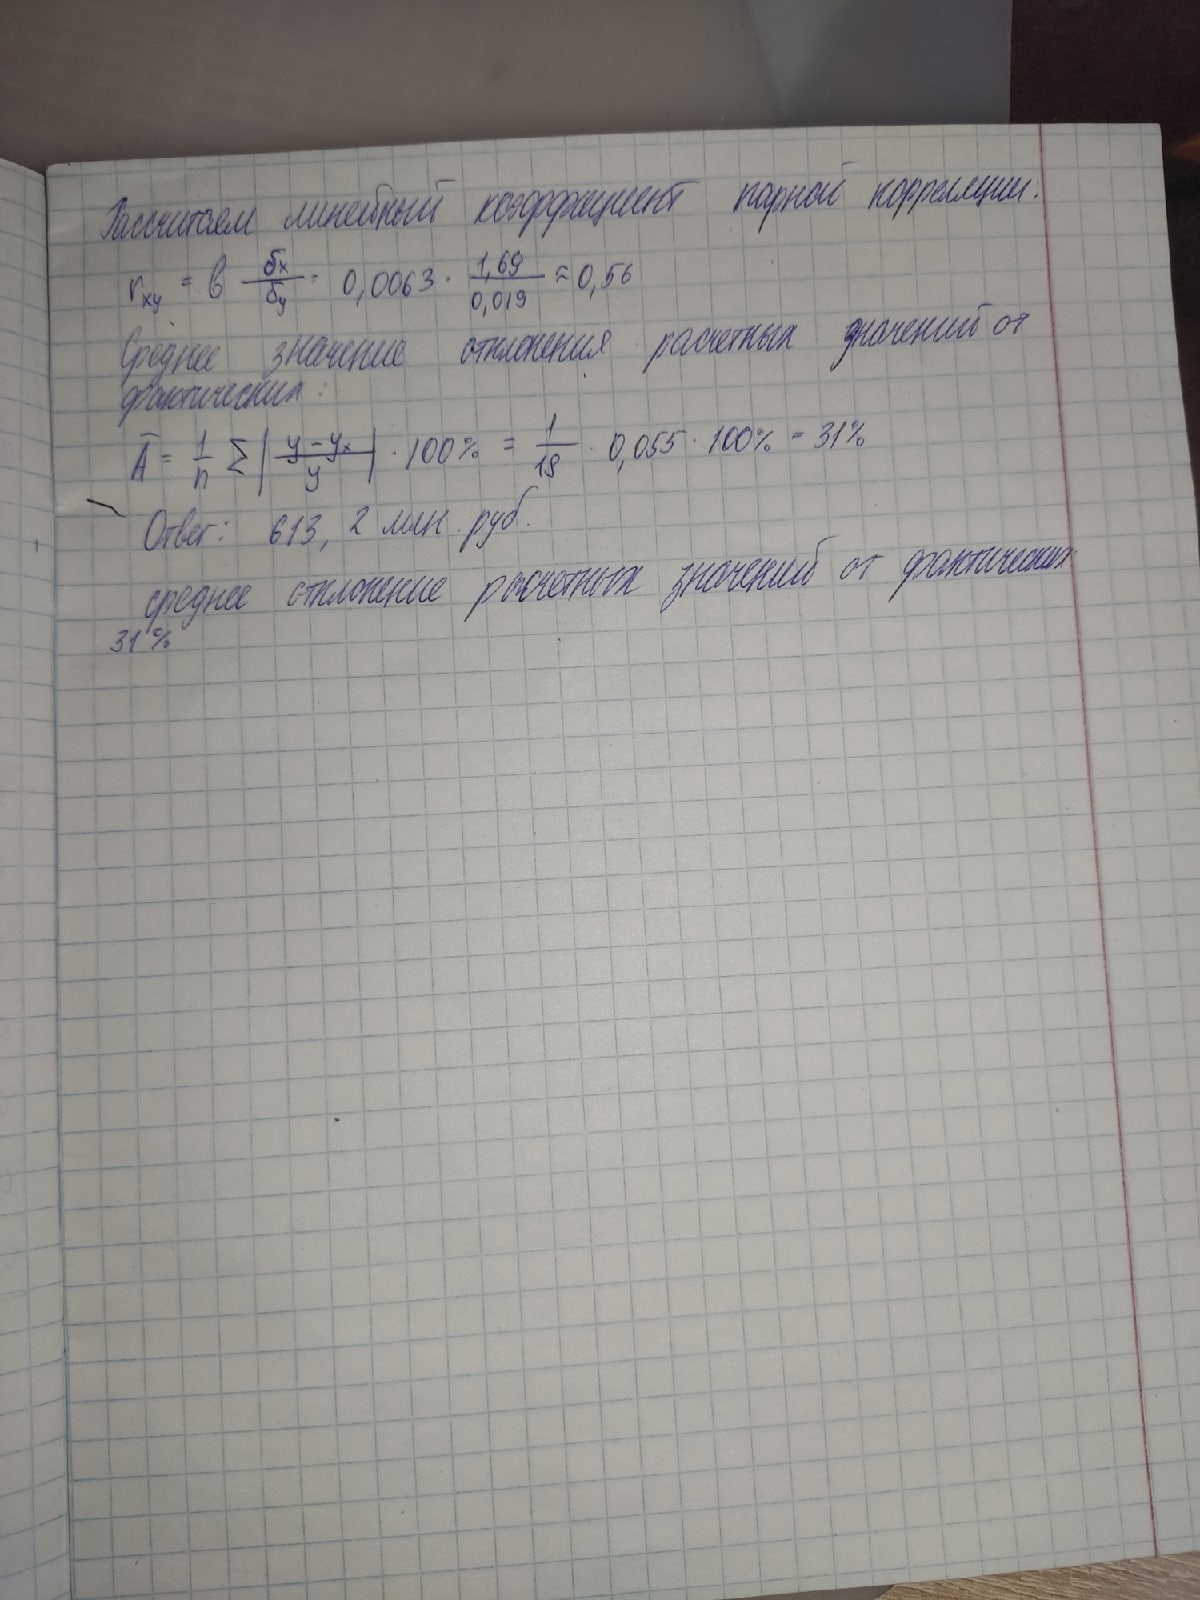 Рассчитаем линейный коэффициент парной корреляции.
r_xy = b б_x/б_y = 0,0063 · 1,69/0,019 ≈ 0,56
Среднее значение отклонения расчетных значений от
фактических:
Ā = 1/n Σ |y - y_x / y| · 100% = 1/18 · 0,055 · 100% = 31%
Ответ: 613, 2 млн. руб.
среднее отклонение расчетных значений от фактических
31%